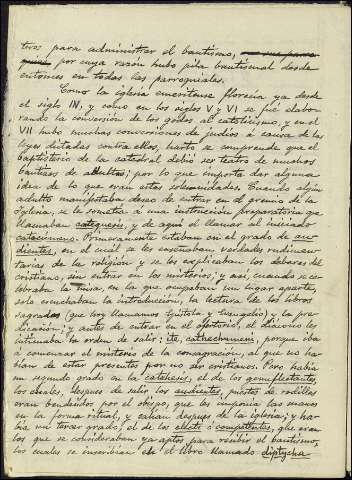 tivos para administrar el bautismo,
por cuya razón hubo pila bautismal desde
entonces en todas las parroquiales.
Como la iglesia emeritense florecia ya desde
el siglo IV, y como en los siglos V y VI se fué elabo-
rando la conversión de los godos al catolicismo, y en el
VII hubo muchas conversiones de judios á causa de las
leyes dictadas contra ellos, harto se comprende que el
baptisterio de la catedral debió ser teatro de muchos
bautizos de adultos; por lo que importa dar alguna
idea de lo que eran estas solemnidades. Cuando algún
adulto manifestaba deseo de entrar en el gremio de la
Iglesia, se le sometia á una instrucción preparatoria que
llamaban catequesis, y de aqui el llamar al iniciado
catecumeno. Primeramente estaban en el grado de au-
dientes, en el cuál se les enseñaban verdades rudimen-
tarias de la religión y se les explicaban los deberes del
cristiano, sin entrar en los misterios; y asi, cuando se ce-
lebraba la misa, en la que ocupaban un lugar aparte,
solo escuchaban la introducción, la lectura de los libros
sagrados (que hoy llamamos Epistola y Evangelio) y la pre-
dicación; y antes de entrar en el ofertorio, el diácono les
intimaba la orden de salir: ite, catechumeni, porque iba
á comenzar el misterio de la consagración, al que no ha-
bian de estar presentes por no ser cristianos. Pero habia
un segundo grado en la catechesis, el de los genuflectantes,
los cuales, despues de salir los audientes, puestos de rodillas
eran bendecidos por el obispo, que les imponia las manos
en la forma ritual, y salian despues de la iglesia; y ha-
bia un tercer grado, el de los electi ó competentes, que eran
los que se consideraban ya aptos para recibir el bautismo,
los cuales se inscribian en el libro llamado diptycha